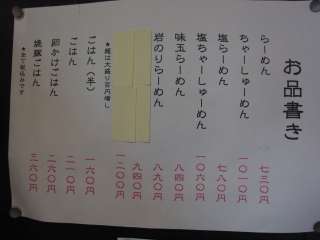 お品書き
らーめん 七三〇円
ちゃーしゅーめん 一〇一〇円
塩らーめん 七八〇円
塩ちゃーしゅーめん 一〇六〇円
味玉らーめん 八四〇円
岩のりらーめん 八九〇円
九四〇円
一二〇〇円
★麺は大盛り百円増し
ごはん（半） 一六〇円
ごはん 二一〇円
卵かけごはん 二六〇円
焼豚ごはん 三六〇円
★全て税込みです